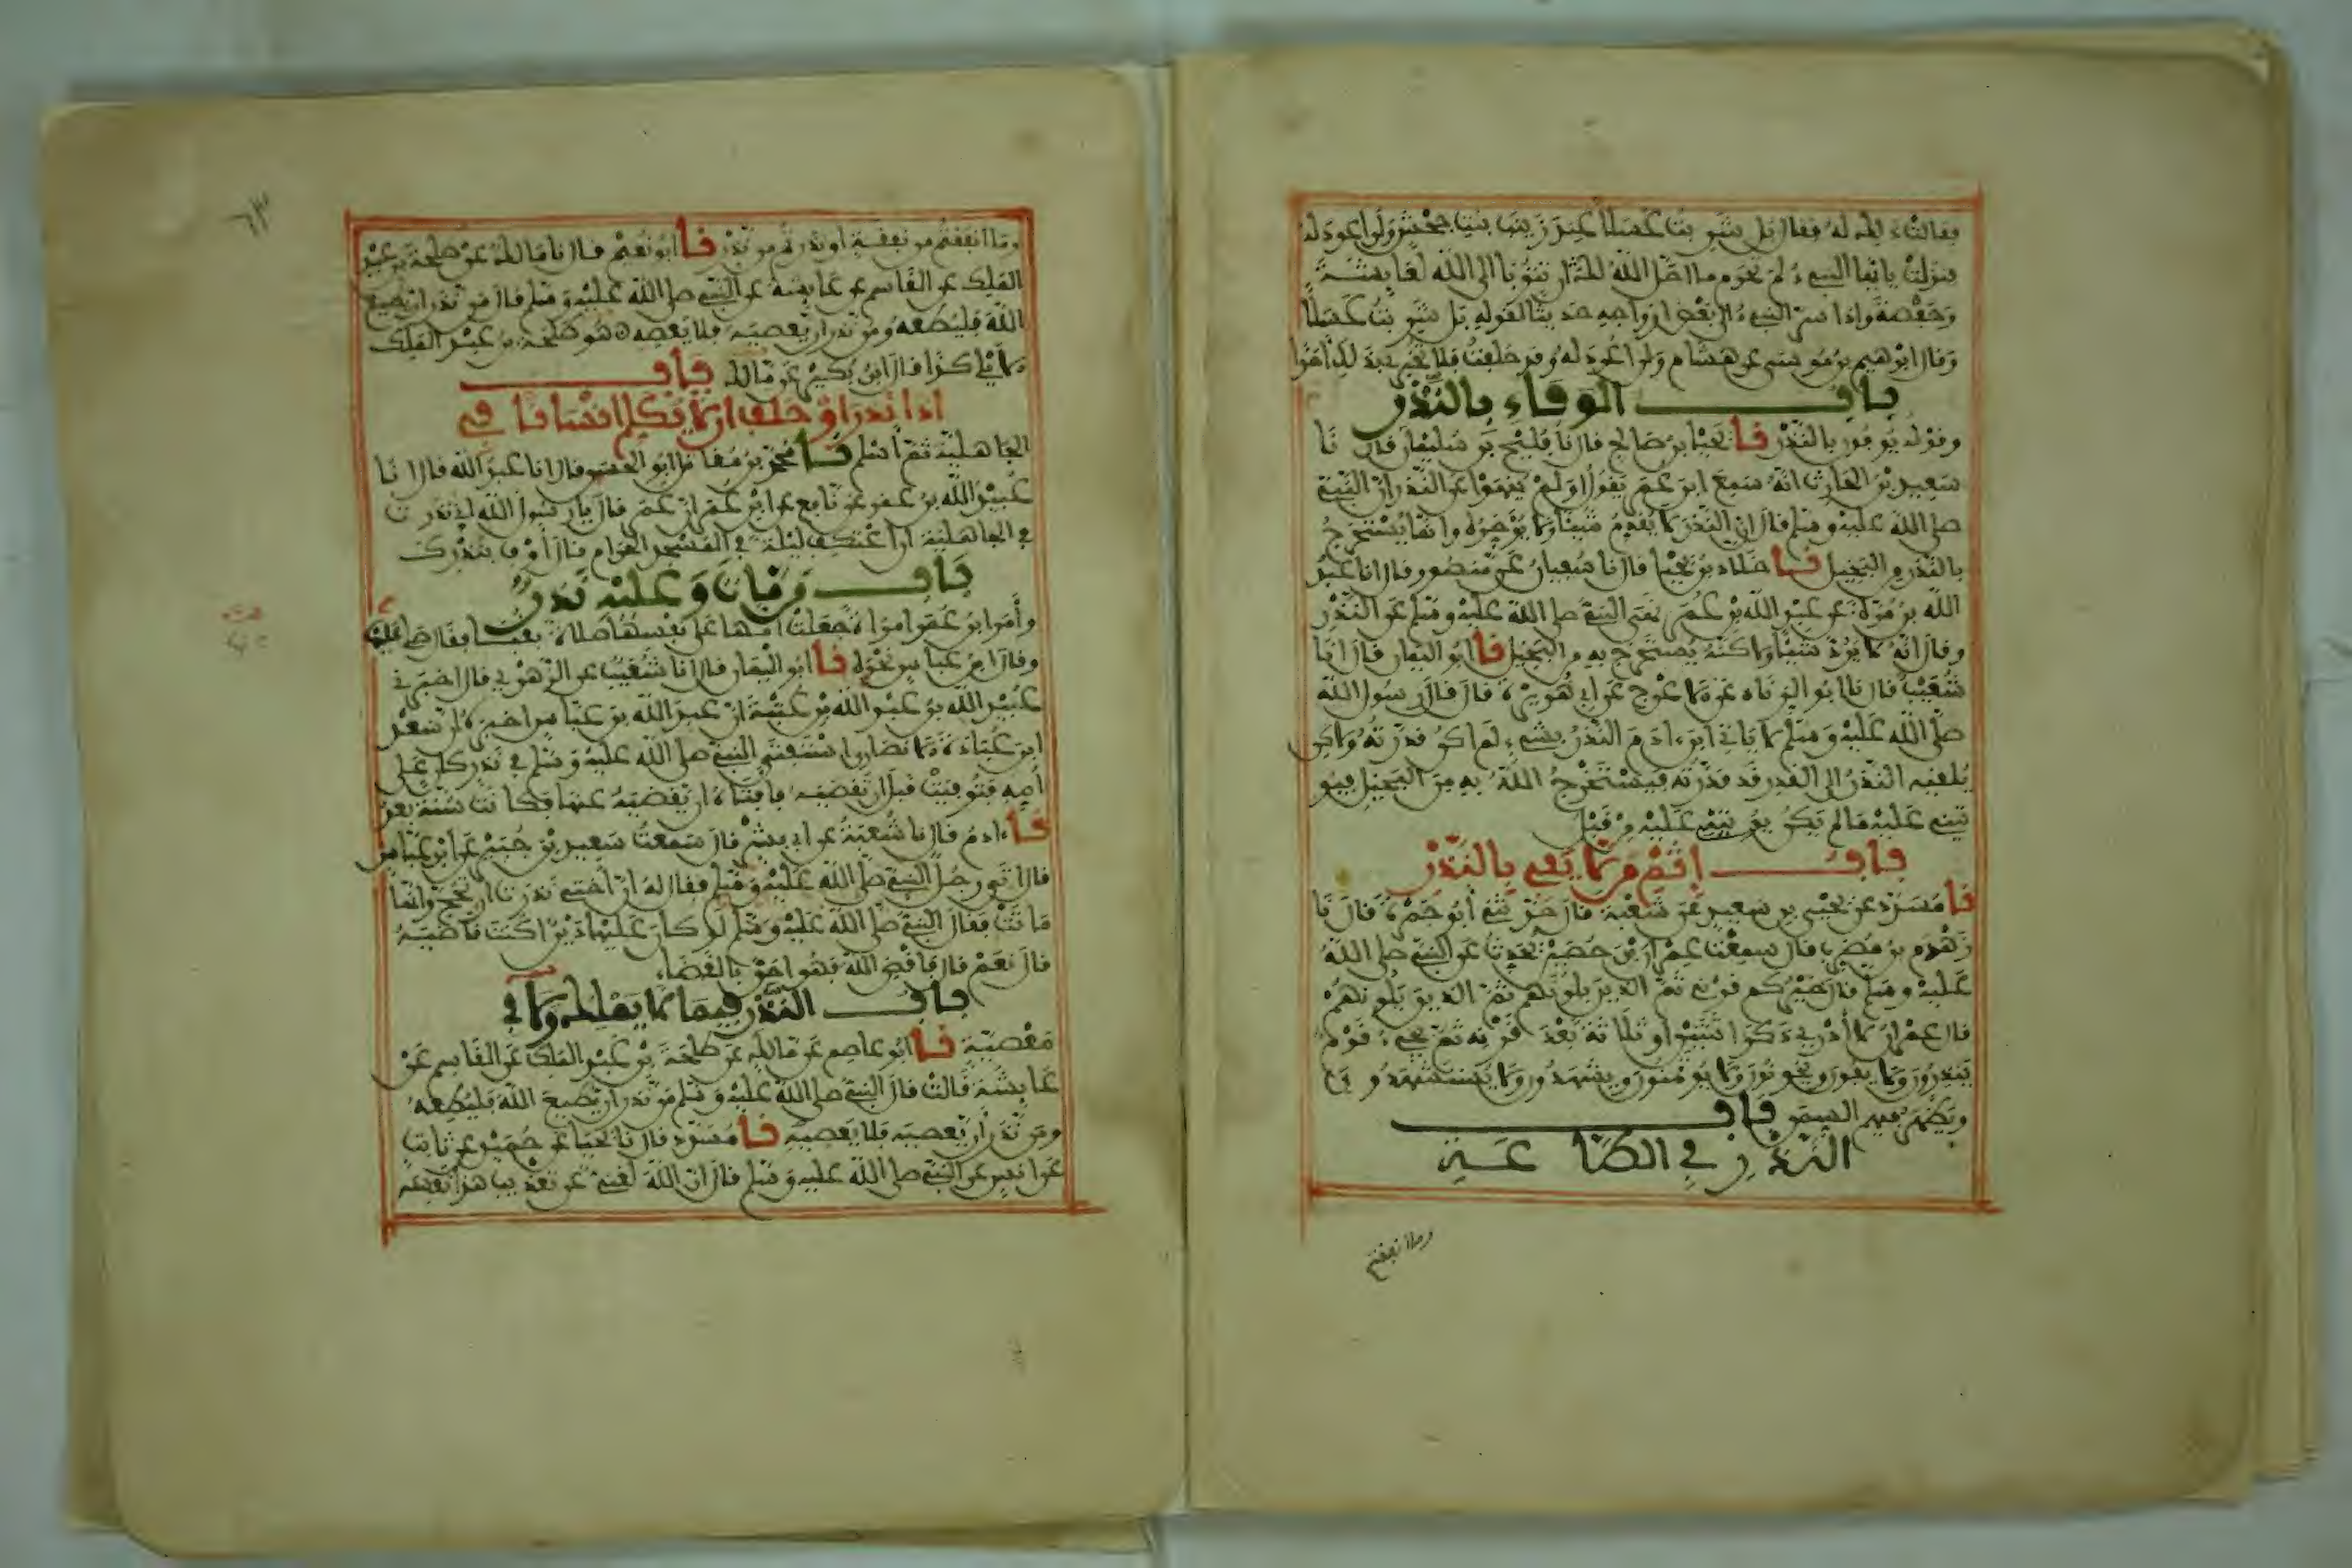 فقالت له فقال بل شربت عسلا عند زينب بنت جحش ولن اعود له
فنزلت يا ايها النبيء لم تحرم ما احل الله لك ان تتوبا الى الله لعائشة
وحفصة واذ اسر النبيء الى بعض ازواجه حديثا لقوله بل شربت عسلا
وقال ابرهيم بن موسى عن هشام ولن اعود له وقد حلفت فلا تخبري بذلك احدا
باب الوفاء بالنذر
وقوله يوفون بالنذر نا يحيى بن صالح قال نا فليح بن سليمان قال نا
سعيد بن الحارث انه سمع ابن عمر يقول او لم ينهوا عن النذر ان النبي
صلى الله عليه وسلم قال ان النذر لا يقدم شيئا ولا يؤخره وانما يستخرج
بالنذر من البخيل نا خلاد بن يحيى قال نا سفيان عن منصور قال انا عبد
الله بن مرة عن عبد الله بن عمر نهى النبي صلى الله عليه وسلم عن النذر
وقال انه لا يرد شيئا ولاكنه يستخرج به من البخيل نا ابو اليمان قال انا
شعيب قال نا ابو الزناد عن الاعرج عن ابي هريرة قال قال رسول الله
صلى الله عليه وسلم لا ياتي ابن ادم النذر بشيء لم اكن قدرته ولاكن
يلقيه النذر الى القدر قد قدرته فيستخرج الله به من البخيل فيو
تيني عليه ما لم يكن يوتيني عليه من قبل
باب اثم من لا يفي بالنذر
نا مسدد عن يحيى بن سعيد عن شعبة قال حدثني ابو جمرة قال نا
زهدم بن مضرب قال سمعت عمران بن حصين يحدث عن النبي صلى الله
عليه وسلم قال خيركم قرني ثم الذين يلونهم ثم الذين يلونهم
قال عمران لا أدري ذكر اثنتين او ثلاثة بعد قرنه ثم يجيء قوم
ينذرون ولا يفون ويخونون ولا يؤمنون ويشهدون ولا يستشهدون
ويظهر فيهم السمن باب
النذر في الطاعة
وما انفقتم
وما انفقتم من نفقة او نذرتم من نذر نا ابو نعيم قال نا مالك عن طلحة بن عبد
الملك عن القاسم عن عائشة عن النبي صلى الله عليه وسلم قال من نذر ان يطيع
الله فليطعه ومن نذر ان يعصيه فلا يعصه هو طلحة بن عبد الملك
الايلي كذا قال ابن بكير عن مالك باب
اذا نذر او حلف ان لا يكلم انسانا في
الجاهلية ثم أسلم نا محمد بن مقاتل ابو الحسن قال انا عبد الله قال انا
عبيد الله بن عمر عن نافع عن ابن عمر ان عمر قال يا رسول الله اني نذرت
في الجاهلية ان اعتكف ليلة في المسجد الحرام قال أوف بنذرك
باب من مات وعليه نذر
وأمر ابن عمر امراة جعلت امها على نفسها صلاة بقبا فقال صلي عنها
وقال ابن عباس نحوه نا ابو اليمان قال انا شعيب عن الزهري قال اخبرني
عبيد الله بن عبد الله بن عتبة ان عبد الله بن عباس اخبره ان سعد
ابن عبادة الانصاري استفتى النبي صلى الله عليه وسلم في نذر كان على
أمه فتوفيت قبل ان تقضيه فافتاه ان يقضيه عنها فكانت سنة بعد
نا ادم قال نا شعبة عن ابي بشر قال سمعت سعيد بن جبير عن ابن عباس
قال اتى رجل النبي صلى الله عليه وسلم فقال له ان أختي نذرت ان تحج وانها
ماتت فقال النبي صلى الله عليه وسلم لو كان عليها دين اكنت قاضيه
قال نعم قال فاقض الله فهو احق بالقضاء
باب النذر فيما لا يملك ولا في
معصية نا ابو عاصم عن مالك عن طلحة بن عبد الملك عن القاسم عن
عائشة قالت قال النبي صلى الله عليه وسلم من نذر ان يطيع الله فليطعه
ومن نذر ان يعصيه فلا يعصيه نا مسدد قال نا يحيى عن حميد عن ثابت
عن انس عن النبي صلى الله عليه وسلم قال ان الله لغني عن تعذيب هذا نفسه